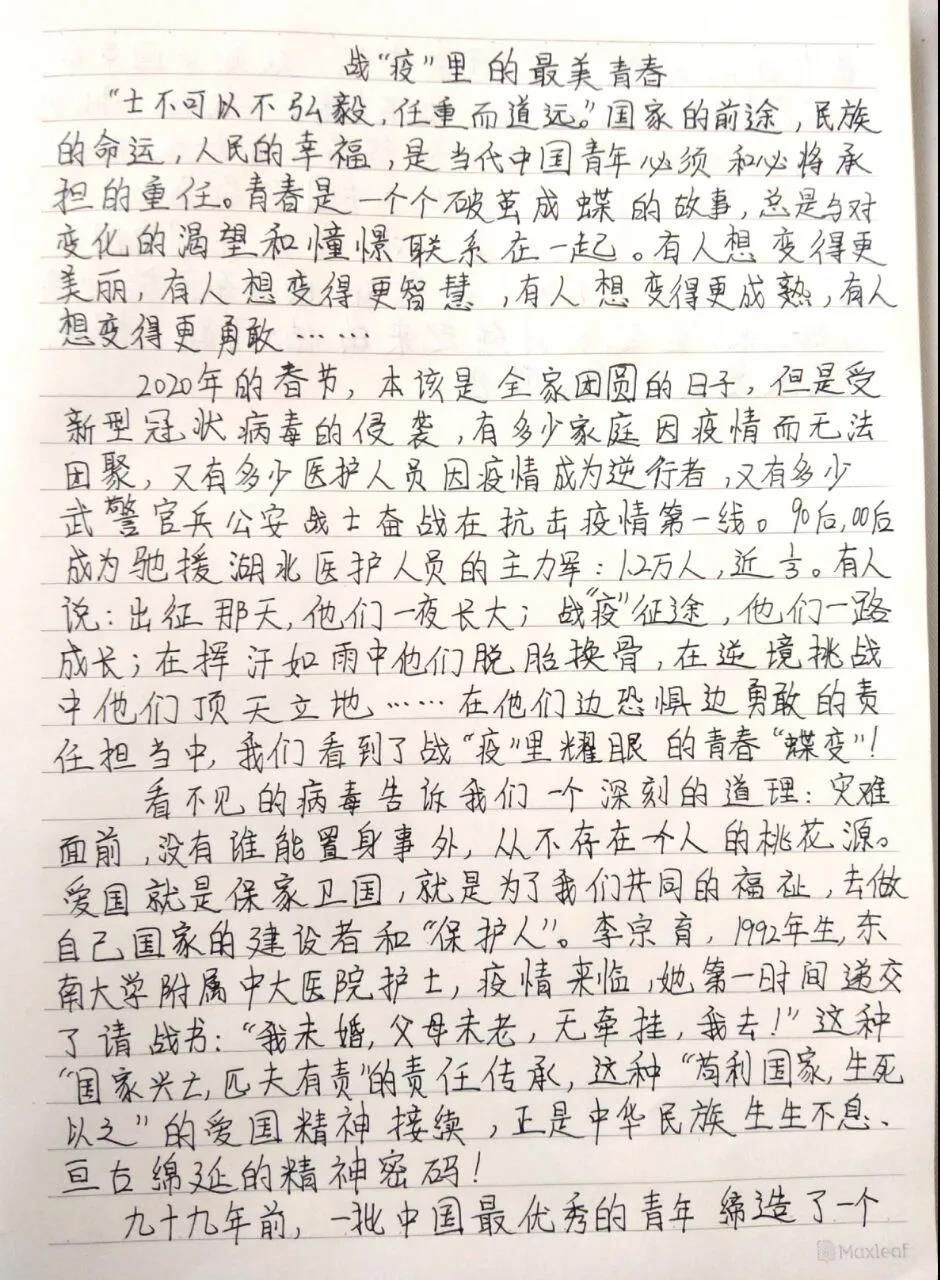 战“疫”里的最美青春
“士不可以不弘毅,任重而道远。”国家的前途,民族
的命运,人民的幸福,是当代中国青年必须和必将承
担的重任。青春是一个个破茧成蝶的故事,总是与对
变化的渴望和憧憬联系在一起。有人想变得更
美丽,有人想变得更智慧,有人想变得更成熟,有人
想变得更勇敢……
2020年的春节,本该是全家团圆的日子,但是受
新型冠状病毒的侵袭,有多少家庭因疫情而无法
团聚,又有多少医护人员因疫情成为逆行者,又有多少
武警官兵公安战士奋战在抗击疫情第一线。90后,00后
成为驰援湖北医护人员的主力军:1.2万人,近⅓。有人
说:出征那天,他们一夜长大;战“疫”征途,他们一路
成长;在挥汗如雨中他们脱胎换骨,在逆境挑战
中他们顶天立地……在他们边恐惧边勇敢的责
任担当中,我们看到了战“疫”里耀眼的青春“蝶变”!
看不见的病毒告诉我们一个深刻的道理:灾难
面前,没有谁能置身事外,从不存在个人的桃花源。
爱国就是保家卫国,就是为了我们共同的福祉,去做
自己国家的建设者和“保护人”。李宗育,1992年生,东
南大学附属中大医院护士,疫情来临,她第一时间递交
了请战书:“我未婚,父母未老,无牵挂,我去!”这种
“国家兴亡,匹夫有责”的责任传承,这种“苟利国家,生死
以之”的爱国精神接续,正是中华民族生生不息、
亘古绵延的精神密码!
九十九年前,一批中国最优秀的青年缔造了一个
Maxleaf